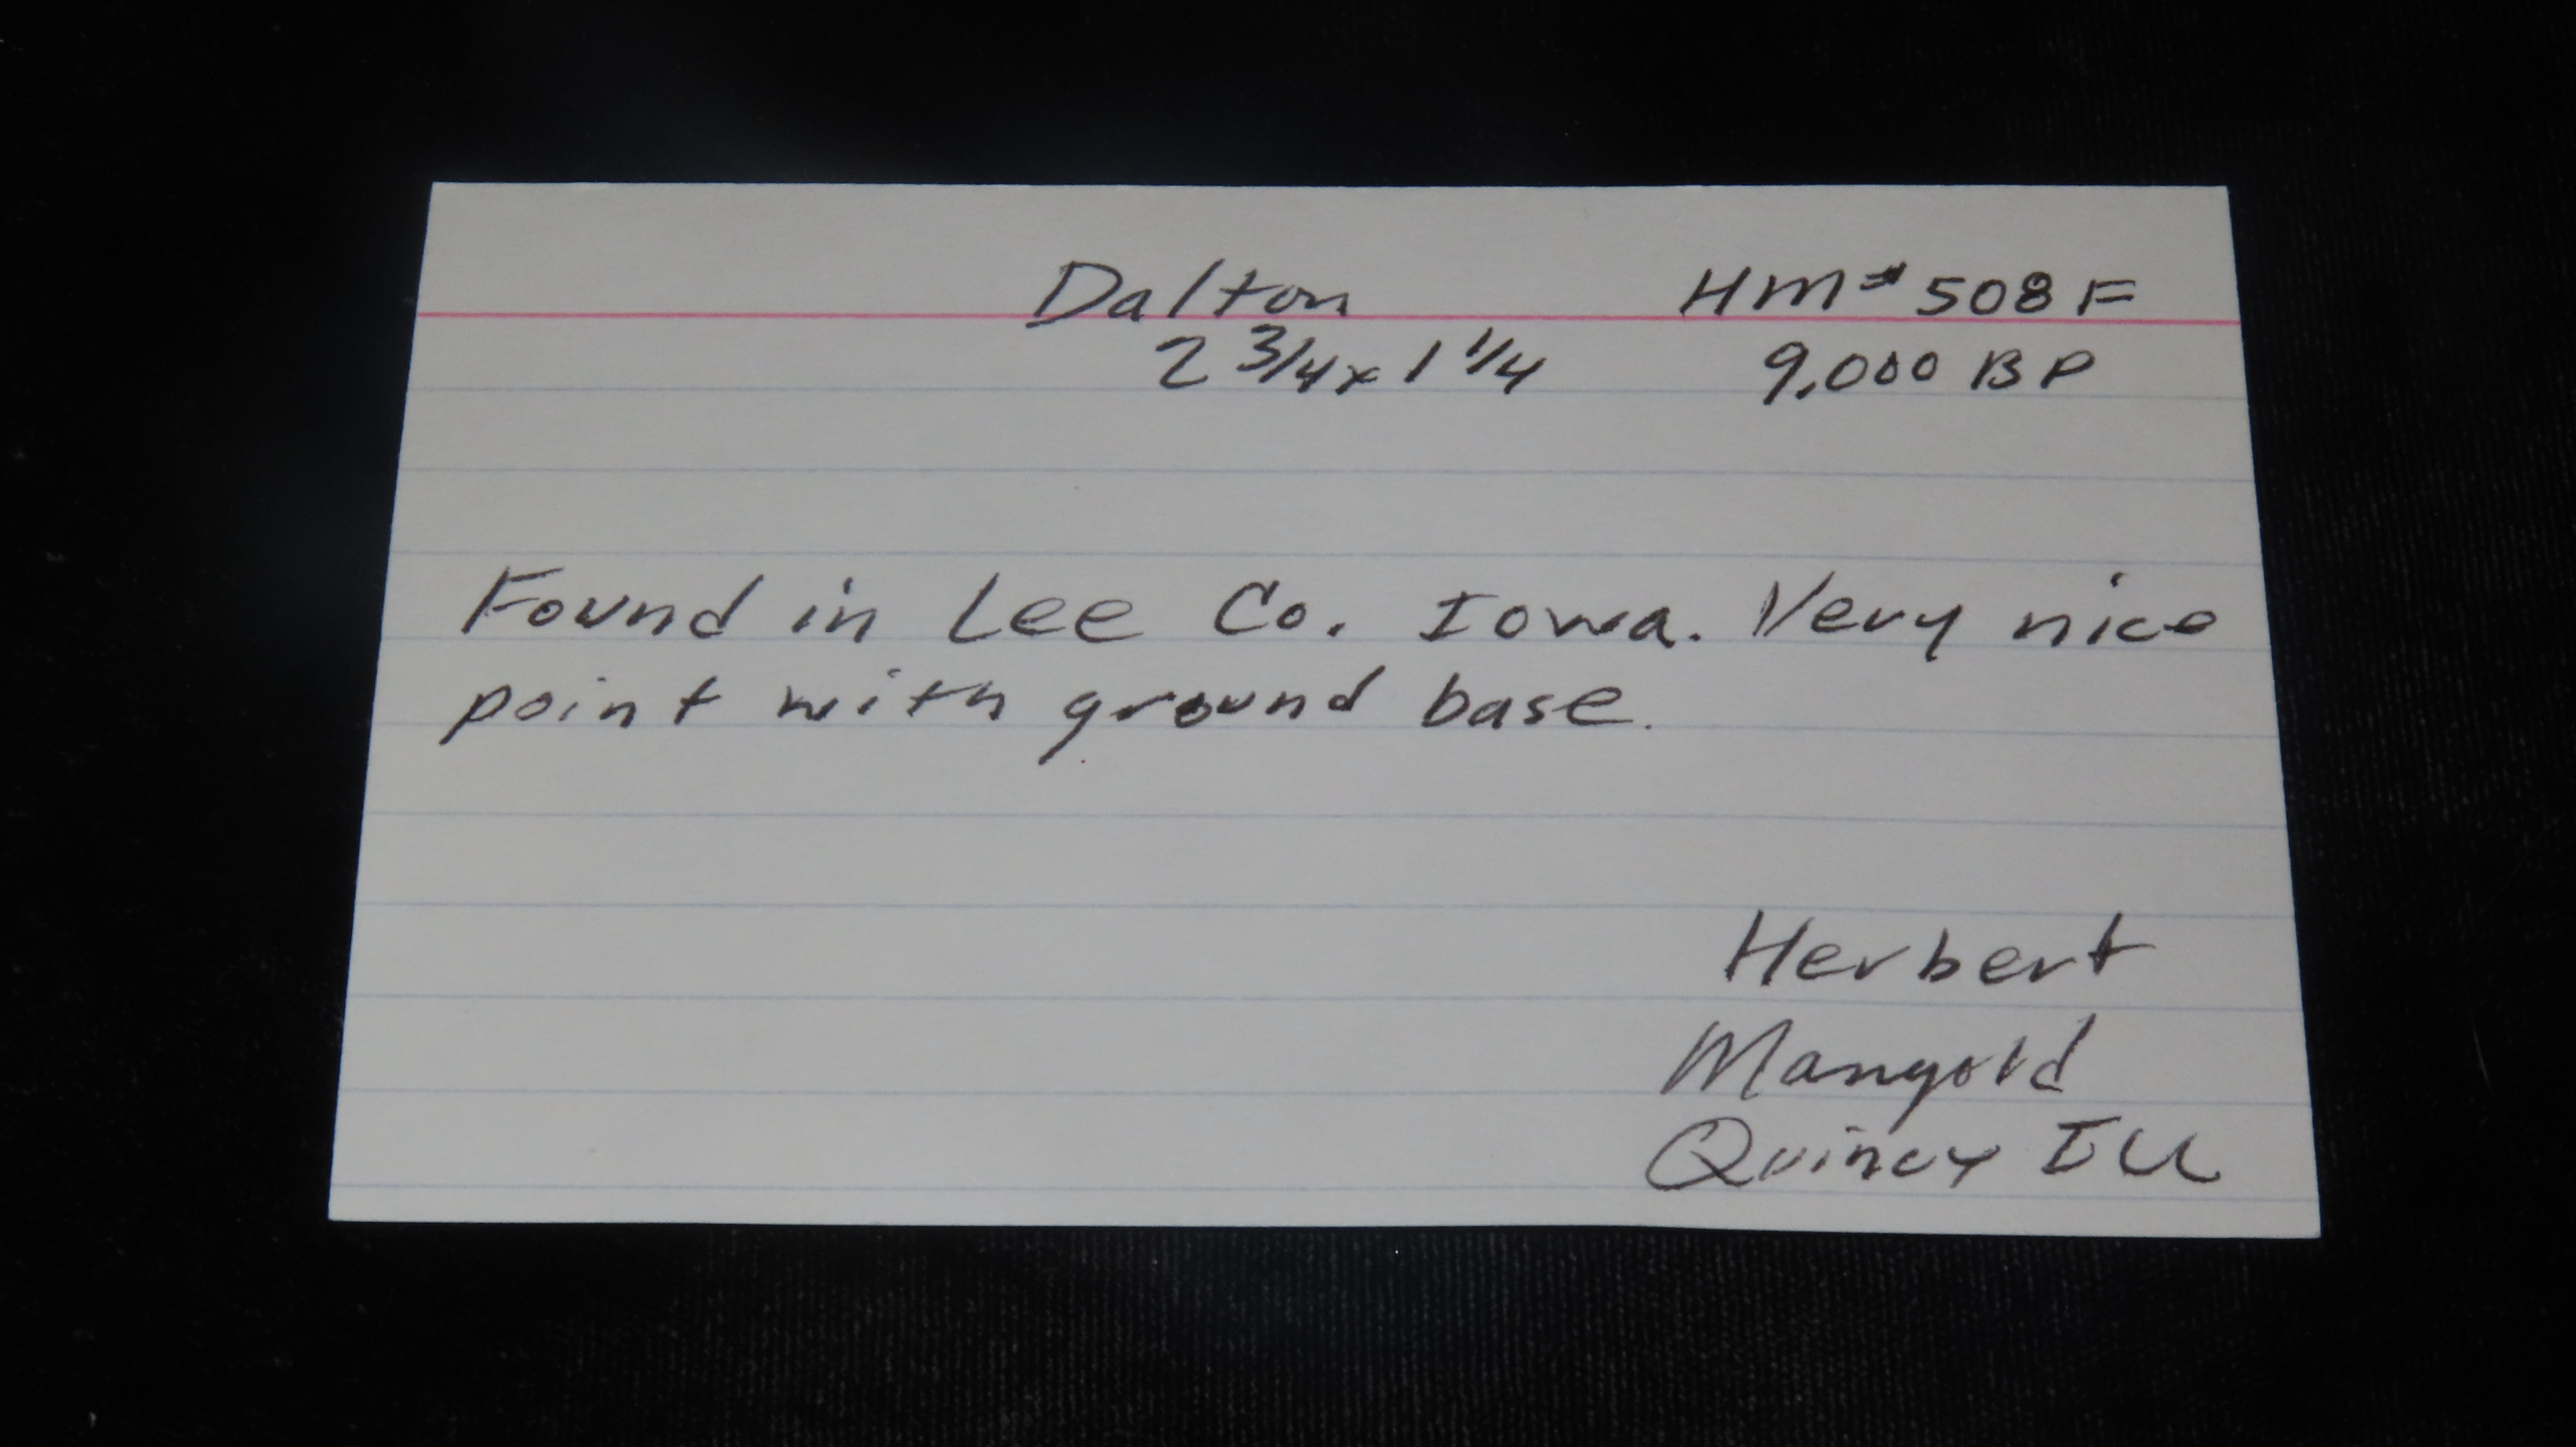 Dalton HM# 508 F
2 3/4 x 1 1/4 9,000 BP
Found in Lee Co. Iowa. Very nice
point with ground base.
Herbert
Mangold
Quincy Ill